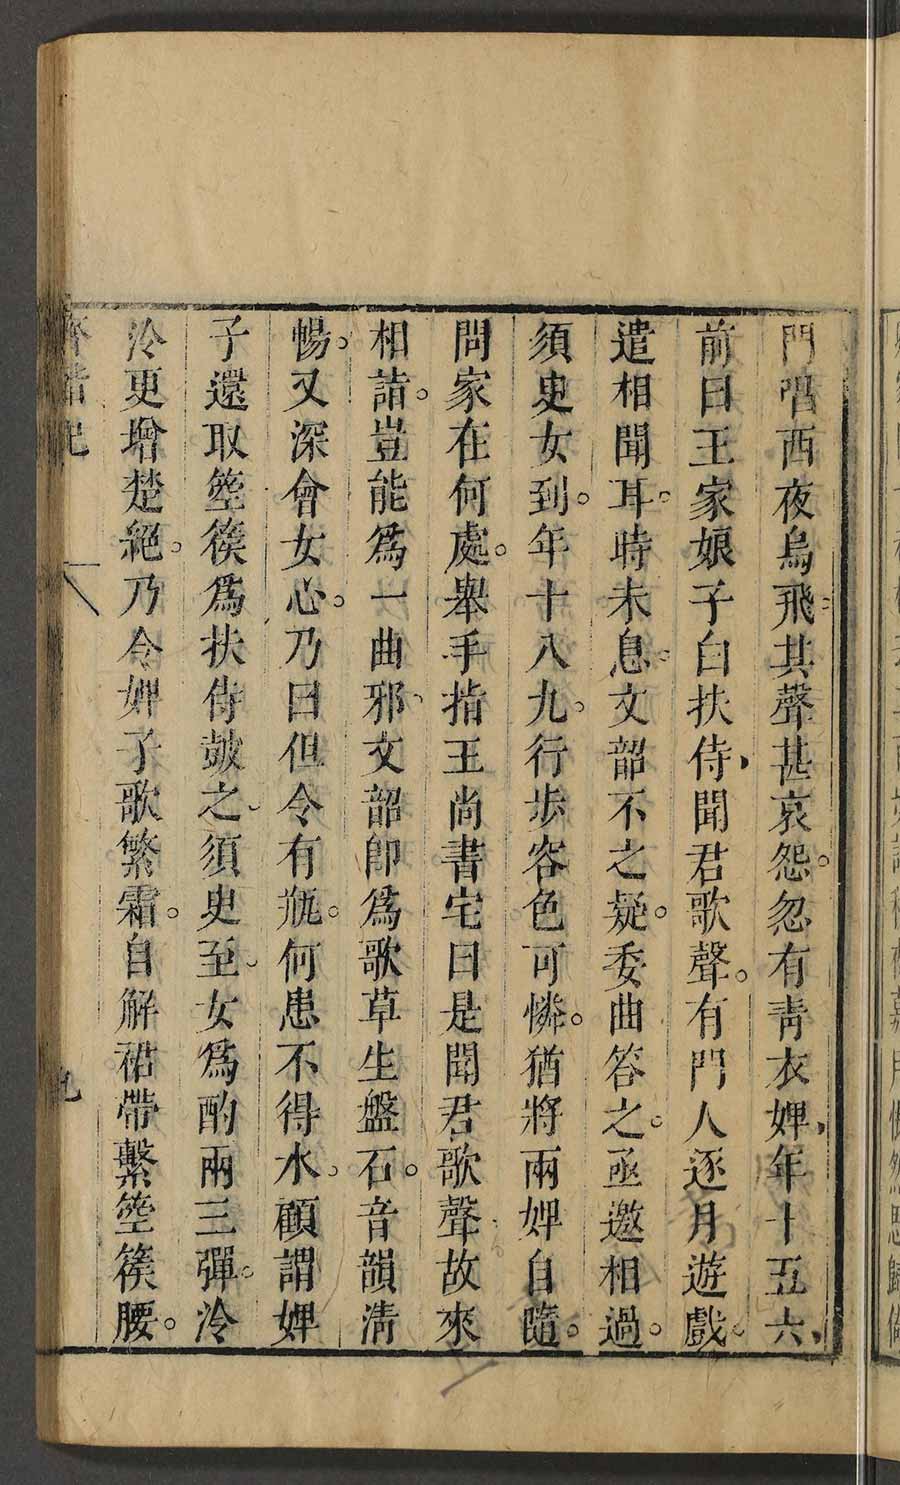 門唱西夜烏飛其聲甚哀怨。忽有靑衣婢,年十五六,
前曰王家娘子白扶侍,聞君歌聲。有門人逐月遊戲。
遣相聞耳。時未息。文韶不之疑。委曲答之。亟邀相過。
須臾女到。年十八九。行步容色可憐。猶將兩婢自隨。
問家在何處。舉手指王尚書宅曰是聞君歌聲故來
相詣。豈能爲一曲邪,文韶卽爲歌草生盤石。音韻淸
暢。又深會女心。乃曰但令有瓶。何患不得水。顧謂婢
子還取箜篌爲扶侍皷之。須臾至。女爲酌兩三彈。泠
泠更增楚絕。乃令婢子歌繁霜。自解裙帶繫箜篌腰。
齊諧記 九